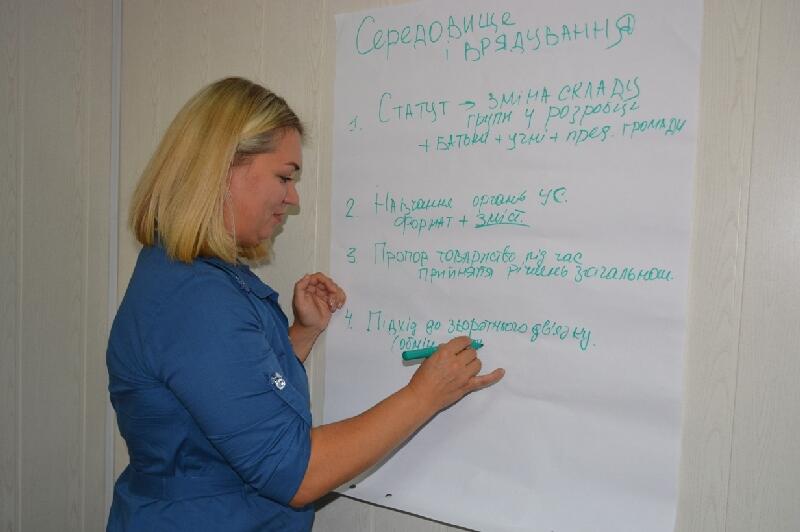 Середовище
і врядування
1. Статут → зміна складу
групи у розробці
+ батьки + учні + пред. громади
2. Навчання органів УС.
формат + зміст.
3. Пропор товариство під час
прийняття рішень загальношк.
4. Підхід до зворотнього зв'язку.